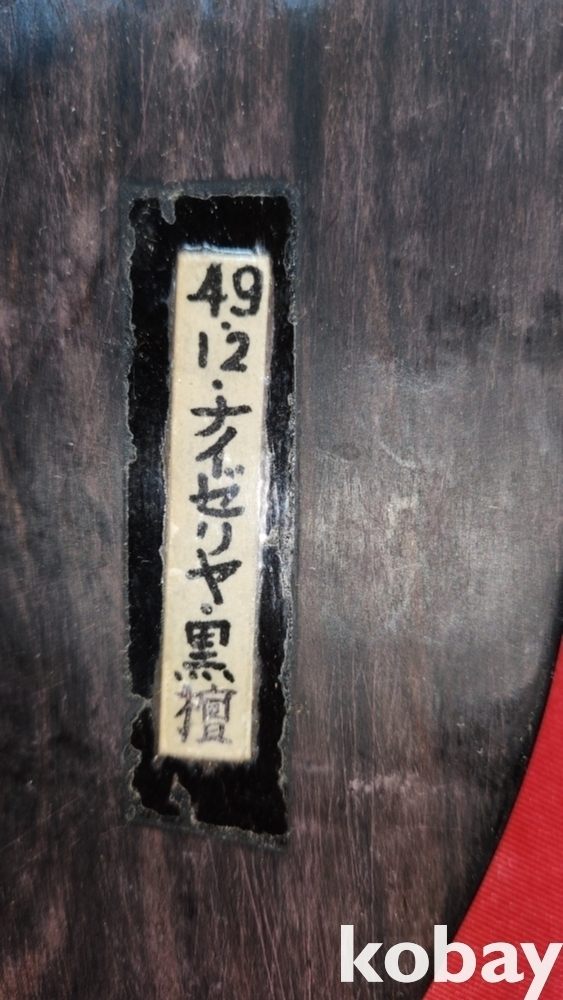 49.
12・ナイゼリヤ・黒檀
kobay